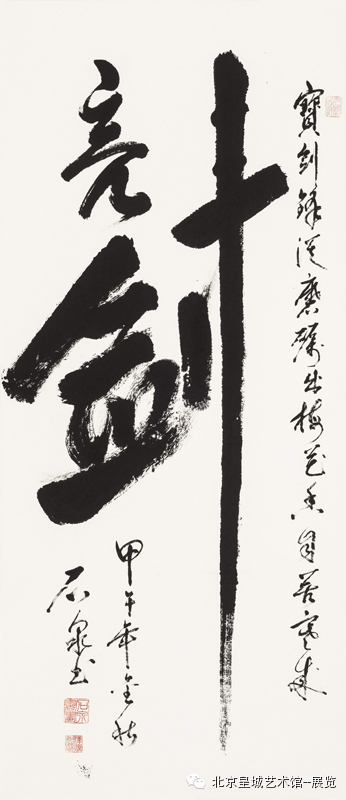 宝剑锋从磨砺出梅花香自苦寒来
亮剑
甲午年金秋
石泉书
北京皇城艺术馆-展览